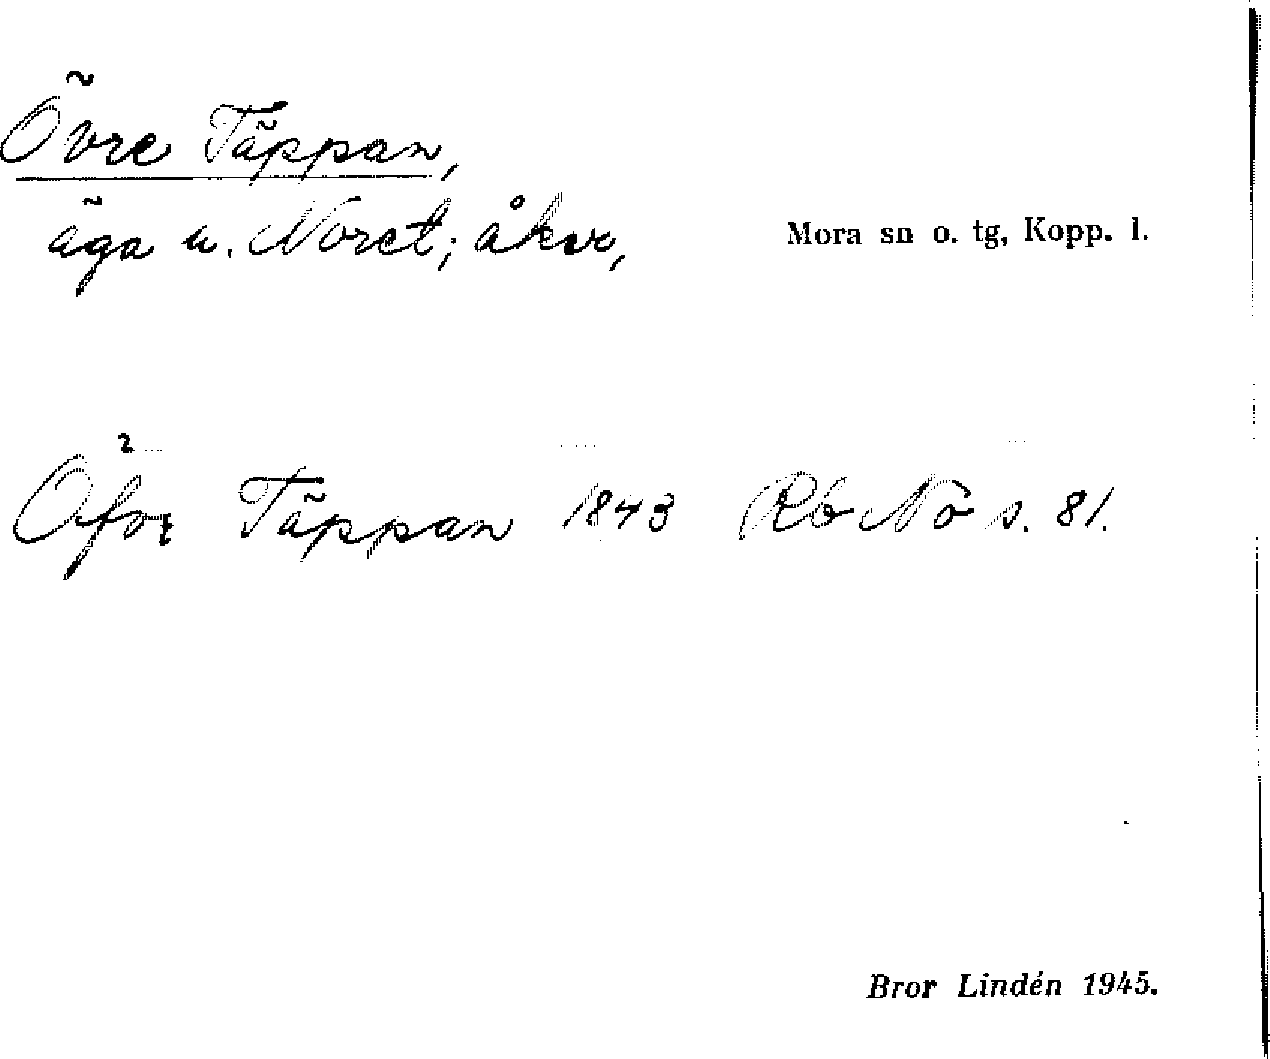 Övre Täppan,
äga u. Noret; åker,
Mora sn o. tg, Kopp. l.
Öfvr Täppan 1843 Rb No s. 81.
Bror Lindén 1945.